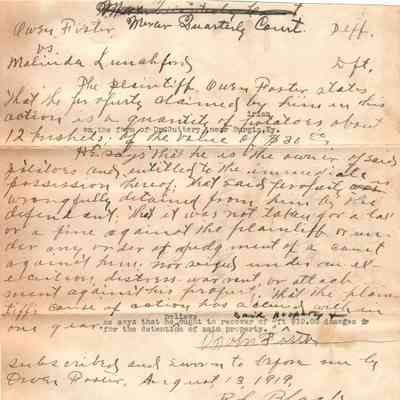 Mercer Quarterly Court.
Owen Fister Plff.
vs.
Malinda Lunchford Dft.
The plaintiff, Owen Foster states
that the property claimed by him in this
action is a quantity of potatoes about
irish
on the farm of DeGuitery, near Burgin, Ky.
12 bushels; of the value of $30 00.
He says that he is the owner of said
potatoes and entitled to the immediate
possession hereof, that said property was
wrongfully detained from him by the
defendant, that it was not taken for a tax
or a fine against the plaintiff or un-
der any order of judgment of a court
against him, nor seized under an ex-
ecution, distress warrent or attach-
ment against his property. That the plain-
tiff's cause of action has accrued within
one year.
said property &
He says that he ought to recover of Dft $10.00 damages
for the detention of said property.
Owen Fister
subscribed and sworn to before me by
Owen Foster, August 13, 1919,